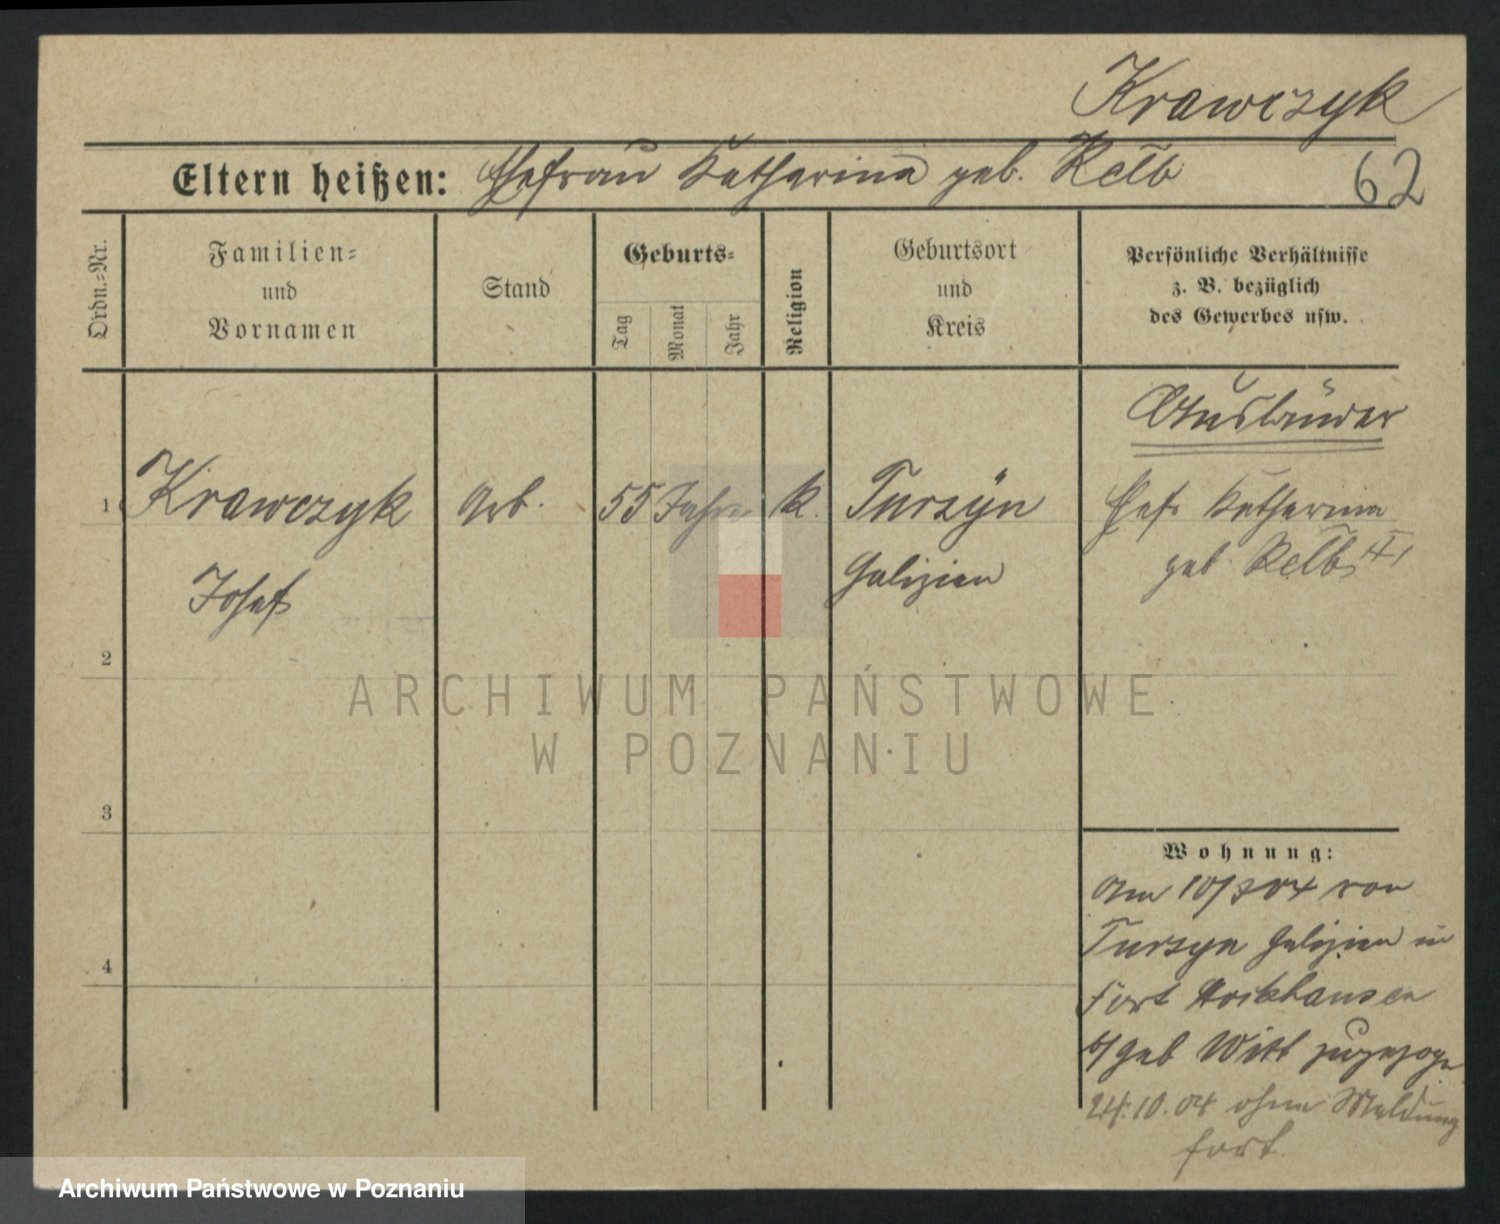 Krawczyk
Eltern heißen: Ehefrau Katharina geb. Kelb
62
Ordn.-Nr.
Familien-
und
Vornamen
Stand
Geburts-
Tag
Monat
Jahr
Religion
Geburtsort
und
Kreis
Persönliche Verhältnisse
z. B. bezüglich
des Gewerbes usw.
Ausländer
1 Krawczyk Arb. 55 Jahre k. Turzÿn Ehefr Katharina
Josef Galizien geb Kelb
2
ARCHIWUM PAŃSTWOWE
W POZNANIU
3
Wohnung:
Am 10/ 04 von
Turzyn Galizien in
Fort
geb Witt zugezogen
4
24.10.04 ohne Meldung
fort.
Archiwum Państwowe w Poznaniu